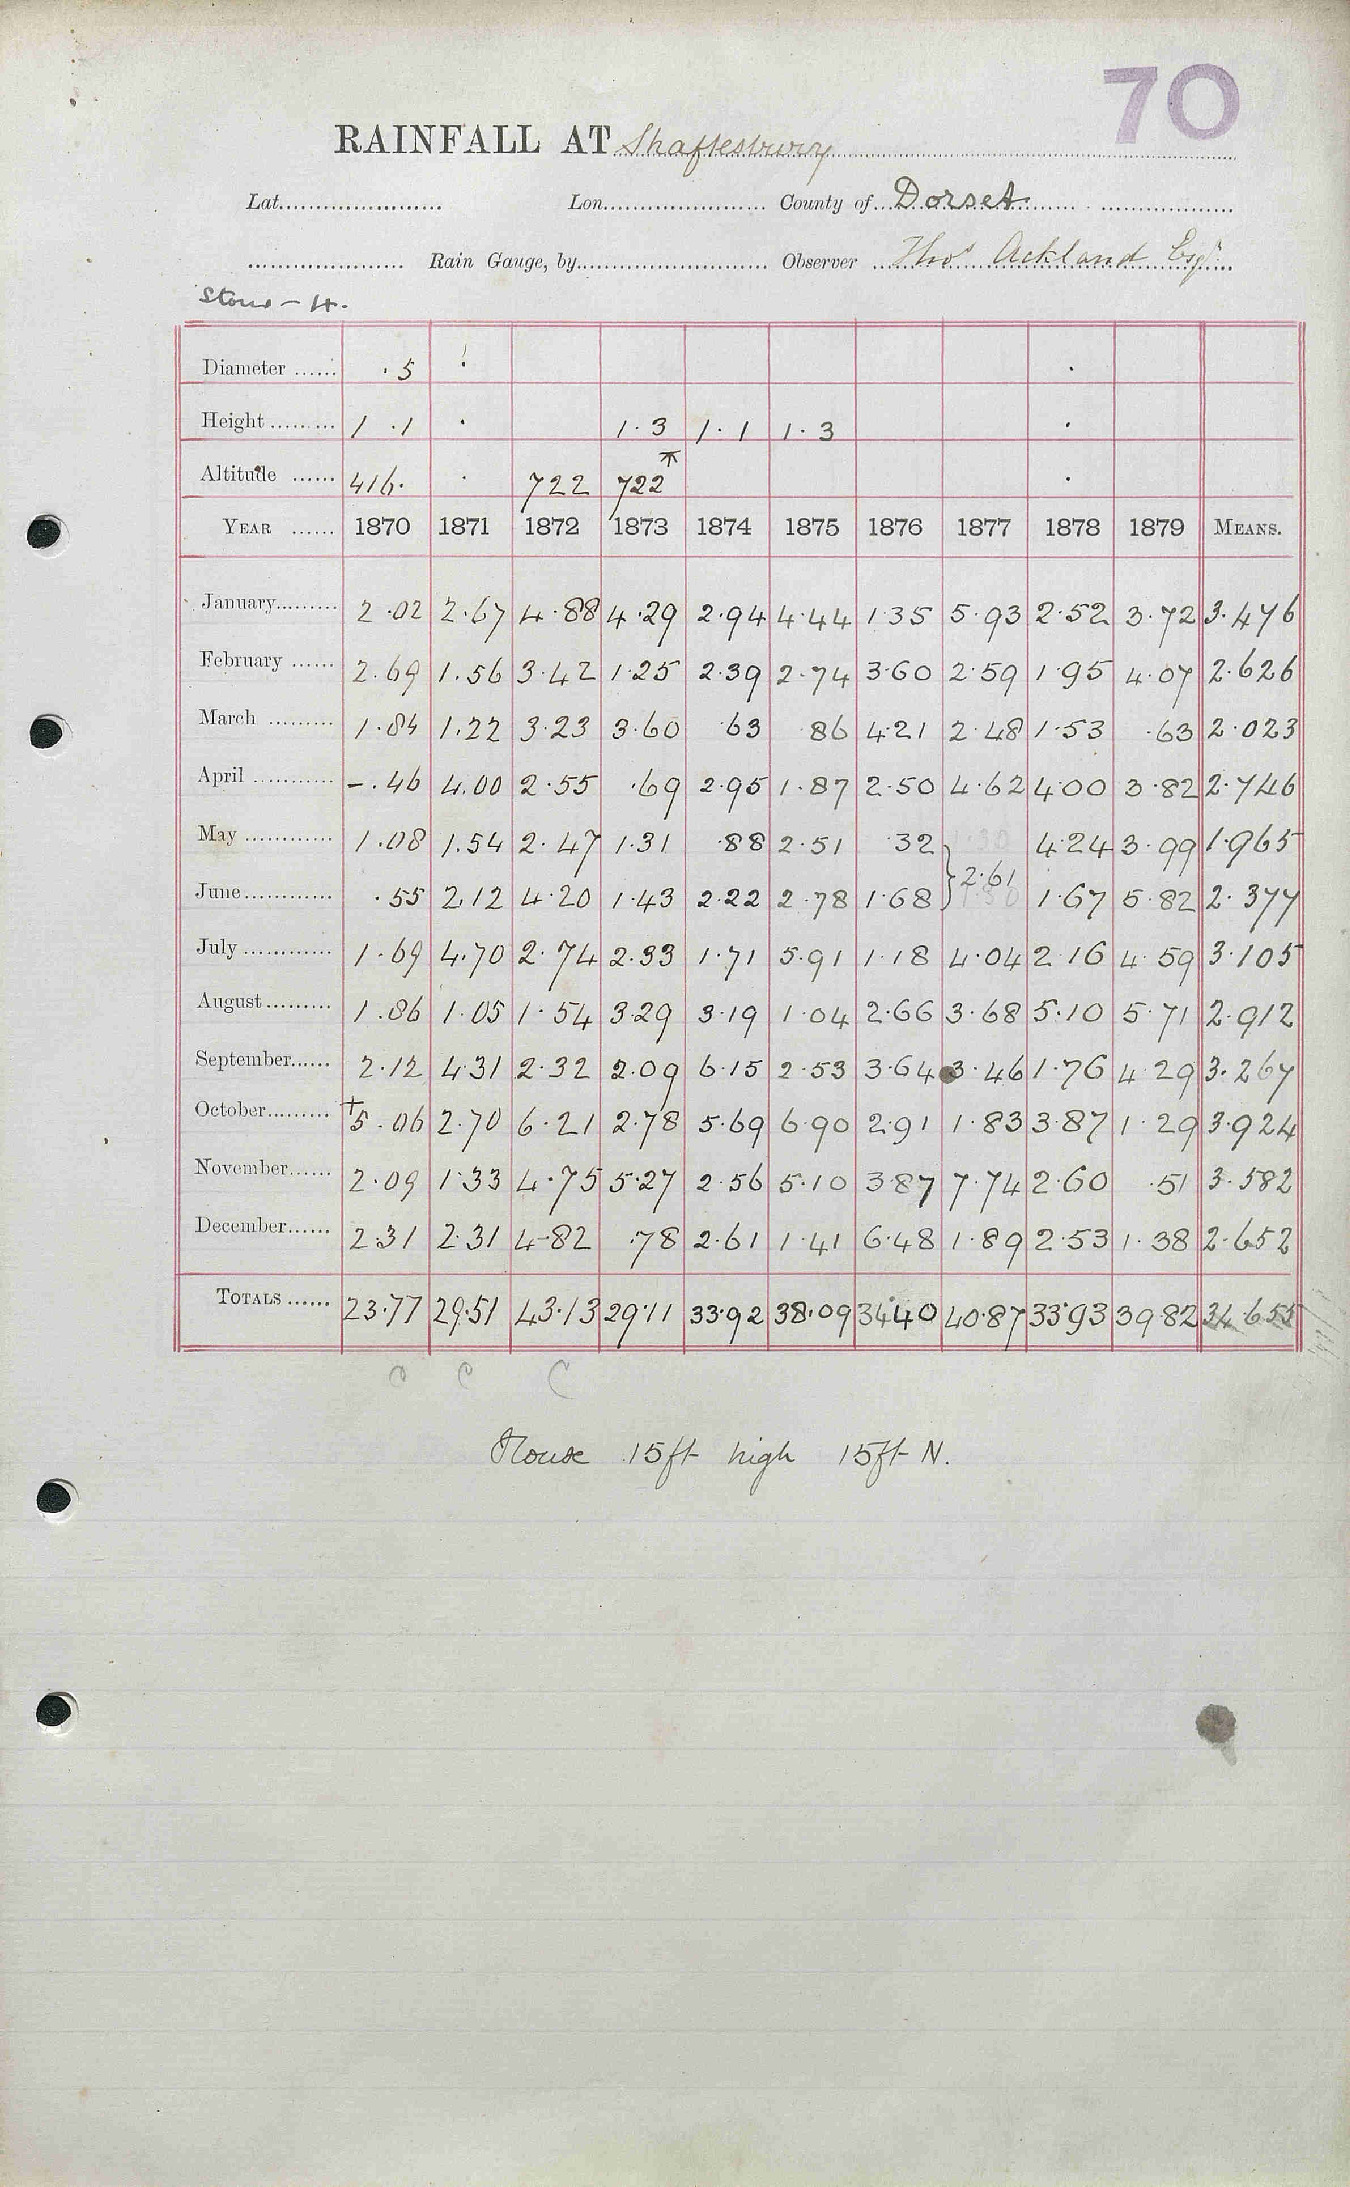 70
RAINFALL AT Shaftesbury
Lat. Lon. County of Dorset
Rain Gauge, by Observer Thos Ackland Esqr
Diameter .5
Height 1.1 1.3 1.1 1.3
Altitude 416. 722 722
YEAR 1870 1871 1872 1873 1874 1875 1876 1877 1878 1879 MEANS.
January 2.02 2.67 4.88 4.29 2.94 4.44 1.35 5.93 2.52 3.72 3.476
February 2.69 1.56 3.42 1.25 2.39 2.74 3.60 2.59 1.95 4.07 2.626
March 1.84 1.22 3.23 3.60 .63 .86 4.21 2.48 1.53 .63 2.023
April -.46 4.00 2.55 .69 2.95 1.87 2.50 4.62 4.00 3.82 2.746
May 1.08 1.54 2.47 1.31 .88 2.51 .32 1.30 4.24 3.99 1.965
} 2.61
June .55 2.12 4.20 1.43 2.22 2.78 1.68 1.30 1.67 5.82 2.377
July 1.69 4.70 2.74 2.33 1.71 5.91 1.18 4.04 2.16 4.59 3.105
August 1.86 1.05 1.54 3.29 3.19 1.04 2.66 3.68 5.10 5.71 2.912
September 2.12 4.31 2.32 2.09 6.15 2.53 3.64 3.46 1.76 4.29 3.267
October +5.06 2.70 6.21 2.78 5.69 6.90 2.91 1.83 3.87 1.29 3.924
November 2.09 1.33 4.75 5.27 2.56 5.10 3.87 7.74 2.60 .51 3.582
December 2.31 2.31 4.82 .78 2.61 1.41 6.48 1.89 2.53 1.38 2.652
TOTALS 23.77 29.51 43.13 29.11 33.92 38.09 34.40 40.87 33.93 39.82 34.655
C C C
House 15ft high 15ft N.